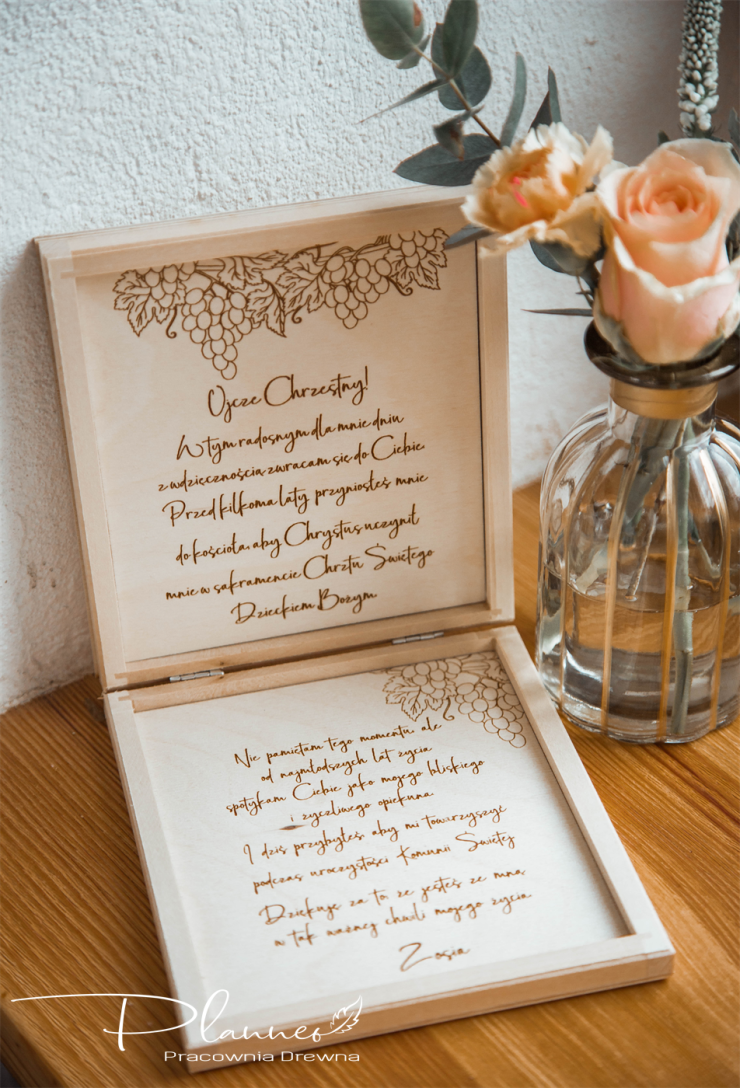 Ojcze Chrzestny!
W tym radosnym dla mnie dniu
z wdzięcznością zwracam się do Ciebie.
Przed kilkoma laty przyniosłeś mnie
do kościoła, aby Chrystus uczynił
mnie w sakramencie Chrztu Świętego
Dzieckiem Bożym.
Nie pamiętam tego momentu, ale
od najmłodszych lat życia
spotykam Ciebie jako mojego bliskiego
i życzliwego opiekuna.
I dziś przybyłeś, aby mi towarzyszyć
podczas uroczystości Komunii Świętej
Dziękuję za to że jesteś ze mną
w tak ważnej chwili mojego życia
Zosia
Planneo
Pracownia Drewna